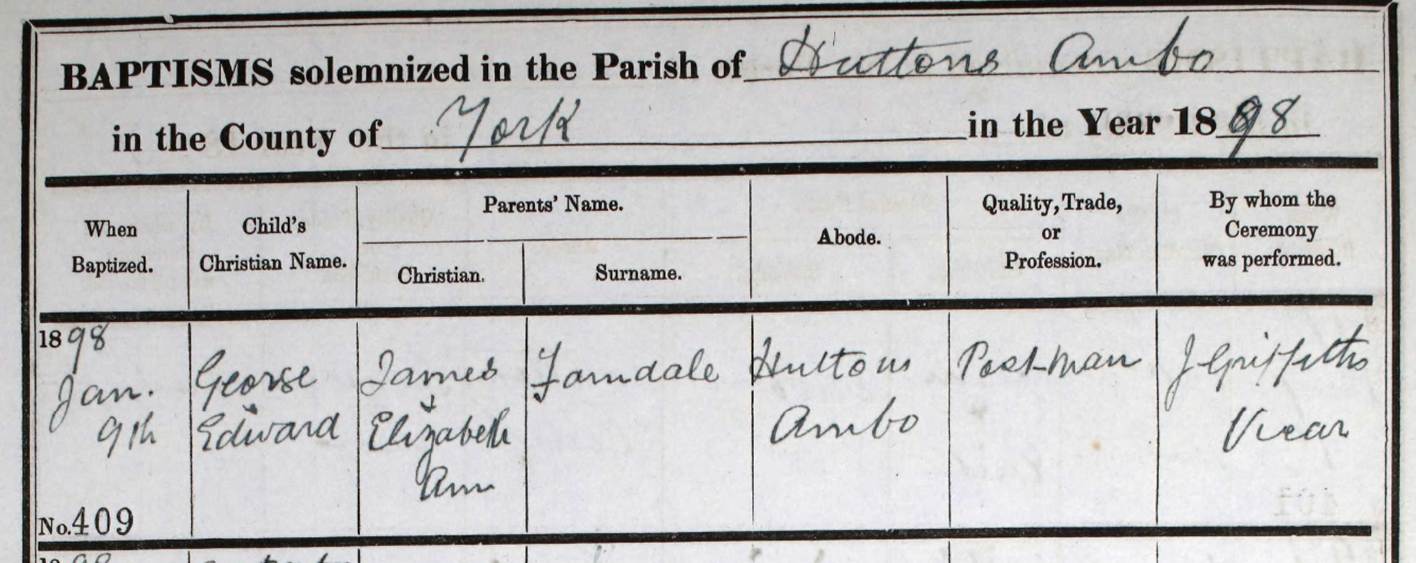 BAPTISMS solemnized in the Parish of Huttons Ambo
in the County of York in the Year 1898
When
Baptized.
Child's
Christian Name.
Parents' Name.
Christian.
Surname.
Abode.
Quality, Trade,
or
Profession.
By whom the
Ceremony
was performed.
1898
Jan.
9th
No. 409
George
Edward
James
&
Elizabeth
Ann
Farndale
Huttons
Ambo
Post-man
J Griffiths
Vicar